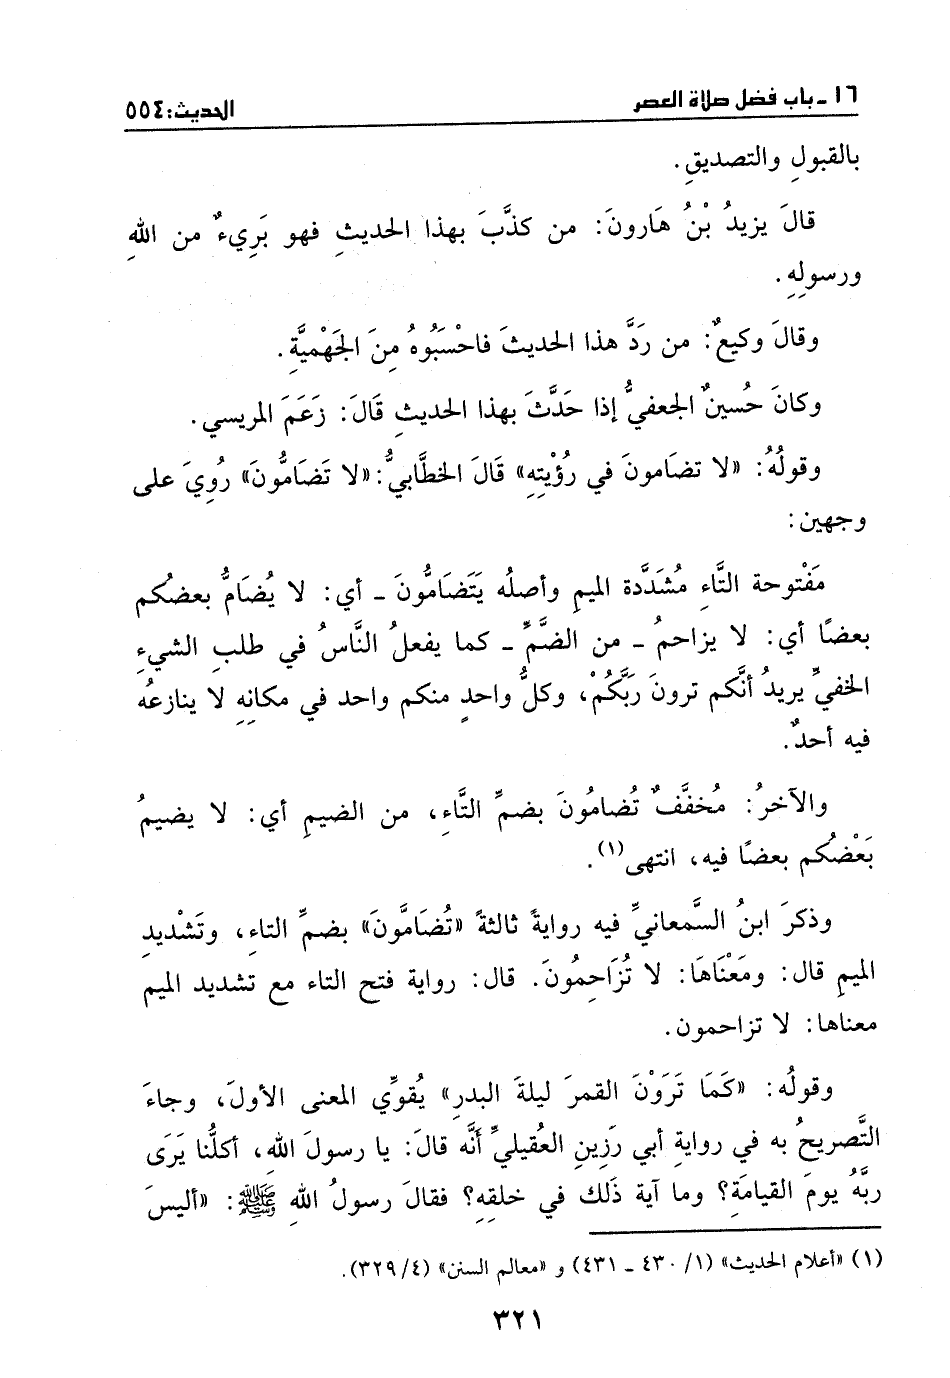 ١٦ - باب فضل صلاة العصر
الحديث: ٥٥٤
بالقبولِ والتصديقِ.
قالَ يزيدُ بْنُ هَارونَ: من كذَّبَ بهذا الحديثِ فهو بَرِيءٌ من اللهِ
ورسولِهِ.
وقالَ وكيعٌ: من رَدَّ هذا الحديثَ فاحْسَبُوهُ مِنَ الجَهْميَّةِ.
وكانَ حُسينٌ الجعفيُّ إذا حَدَّثَ بهذا الحديثِ قَالَ: زَعَمَ المريسي.
وقولُهُ: «لا تضَامونَ في رُؤْيتِهِ» قَالَ الخطَّابيُّ: «لا تَضَامُّونَ» رُوِيَ على
وجهين:
مَفْتوحة التَّاءِ مُشَدَّدة الميمِ وأصلُه يَتَضَامُّونَ - أي: لا يُضَامُّ بعضُكم
بعضًا أي: لا يزاحمُ - من الضَّمِّ - كما يفعلُ النَّاسُ في طلبِ الشيءِ
الخفيِّ يريدُ أنَّكم ترونَ رَبَّكُمْ، وكلُّ واحدٍ منكم واحد في مكانِهِ لا ينازعُه
فيه أحدٌ.
والآخرُ: مُخفَّفٌ تُضامُونَ بضمِّ التَّاءِ، من الضيمِ أي: لا يضيمُ
بَعْضُكم بعضًا فيه، انتهى(١).
وذكرَ ابنُ السَّمعانيِّ فيه روايةً ثالثةً «تُضَامَّونَ» بضمِّ التاءِ، وتَشْديدِ
الميمِ قال: ومَعْنَاهَا: لا تُزَاحِمُونَ. قال: رواية فتح التاء مع تشديد الميم
معناها: لا تزاحمون.
وقولُه: «كَمَا تَرَوْنَ القمرَ ليلةَ البدرِ» يُقوِّي المعنى الأولَ، وجاءَ
التَّصريحُ به في روايةِ أبي رَزِينِ العُقيليِّ أنَّه قالَ: يا رسولَ اللهِ، أكلُّنا يَرَى
ربَّهُ يومَ القيامَةِ؟ وما آية ذَلك في خلقِهِ؟ فقالَ رسولُ اللهِ ﷺ: «أليسَ
(١) «أعلام الحديث» (١/ ٤٣٠ - ٤٣١) و «معالم السنن» (٤/ ٣٢٩).
٣٢١